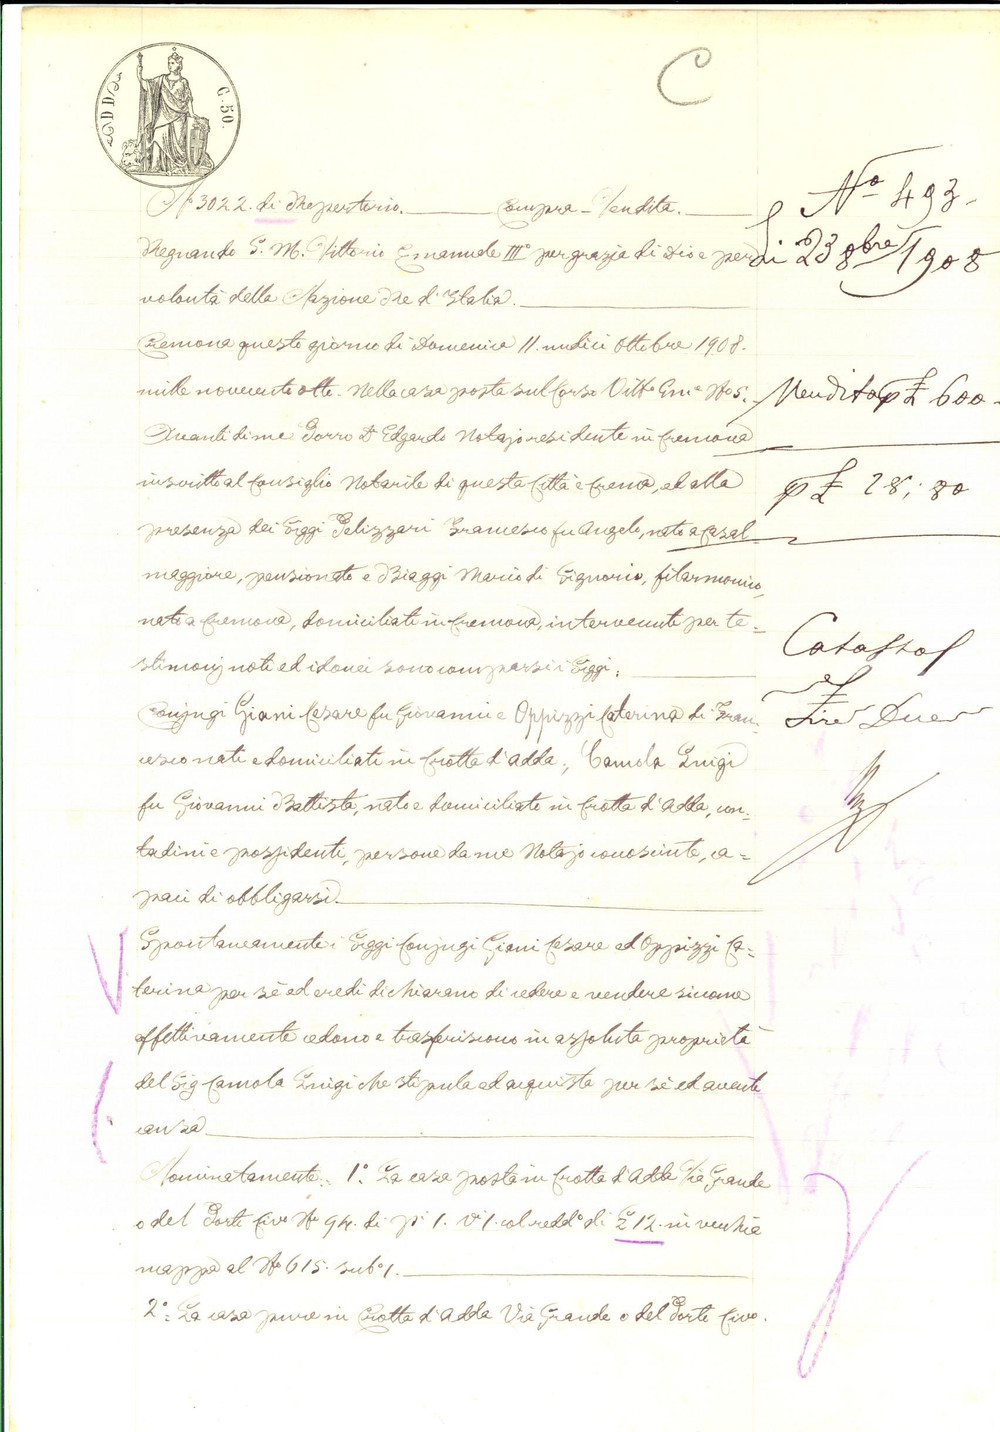 C
ADDI C. 50.
N° 3022. di Repertorio. Compra-Vendita.
Regnando S. M. Vittorio Emanuele III° per grazia di Dio e per
volontà della Nazione Re d'Italia.
Cremona questo giorno di Domenica 11. undici Ottobre 1908.
mille novecento otto. Nella casa posta sul Corso Vitt° Em.e N° 5.
Avanti di me Porro Dr Edgardo Notajo residente in Cremona
inscritto al Consiglio Notarile di questa Città e Crema, ed alla
presenza dei Siggi Pelizzari Francesco fu Angelo, nato a Casal
maggiore, pensionato e Biaggi Mario di Signorio, filarmonico,
nato a Cremona, domiciliati in Cremona, intervenuti per te=
stimonj noti ed idonei sono comparsi i Siggi:
Conjugi Giani Cesare fu Giovanni e Oppizzi Caterina di Fran=
cesco nati e domiciliati in Crotta d'Adda; Camola Luigi
fu Giovanni Battista, nato e domiciliato in Crotta d'Adda, con=
tadini e possidenti, persone da me Notajo conosciute, ca=
paci di obbligarsi.
Spontaneamente i Siggi Conjugi Giani Cesare ed Oppizzi Ca=
terina per sè ed eredi dichiarano di cedere e vendere siccome
effettivamente cedono e trasferiscono in assoluta proprietà
del Sig Camola Luigi che stipula ed acquista per sè ed avente
causa
Nominatamente: 1° La casa posta in Crotta d'Adda Via Grande
o del Forte Civ° N° 94. di p.i 1. v.i 1. col redd° di £ 12. in vecchia
mappa al N° 615. sub° 1.
2°= La casa pure in Crotta d'Adda Via Grande o del Forte Civo.
N° 493.
di 23 8bre 1908
Vendita £ 600
£ 28,80
Catastal
£
Lire Due